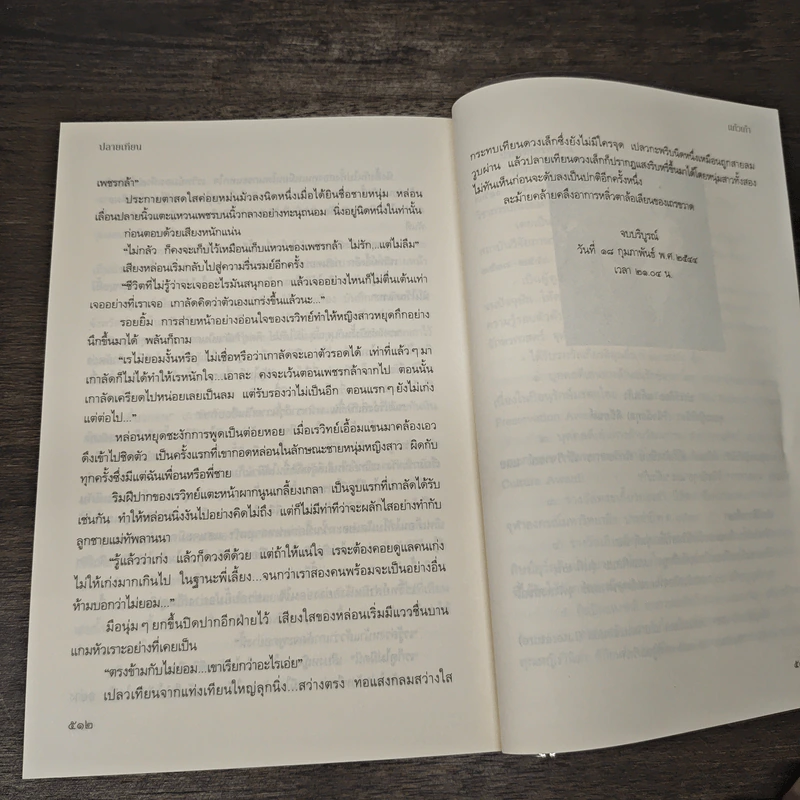 ปลายเทียน
เพชรกล้า”
ประกายตาสดใสค่อยหม่นมัวลงนิดหนึ่งเมื่อได้ยินชื่อชายหนุ่ม หล่อน
เลื่อนปลายนิ้วแตะแหวนเพชรบนนิ้วกลางอย่างทะนุถนอม นิ่งอยู่นิดหนึ่งในท่านั้น
ก่อนตอบด้วยเสียงหนักแน่น
“ไม่กลัว ก็คงจะเก็บไว้เหมือนเก็บแหวนของเพชรกล้า ไม่รัก...แต่ไม่ลืม”
เสียงหล่อนเริ่มกลับไปสู่ความรื่นรมย์อีกครั้ง
“ชีวิตที่ไม่รู้ว่าจะเจออะไรมันสนุกออก แล้วเจออย่างไหนก็ไม่ตื่นเต้นเท่า
เจออย่างที่เราเจอ เกาลัดคิดว่าตัวเองแกร่งขึ้นแล้วนะ...”
รอยยิ้ม การส่ายหน้าอย่างอ่อนใจของเรวิทย์ทำให้หญิงสาวหยุดกึกอย่าง
นึกขึ้นมาได้ พลันก็ถาม
“เรไม่ยอมงั้นหรือ ไม่เชื่อหรือว่าเกาลัดจะเอาตัวรอดได้ เท่าที่แล้วๆ มา
เกาลัดก็ไม่ได้ทำให้เรหนักใจ...เอาละ คงจะเว้นตอนเพชรกล้าจากไป ตอนนั้น
เกาลัดเครียดไปหน่อยเลยเป็นลม แต่รับรองว่าไม่เป็นอีก ตอนแรกๆ ยังไม่เก่ง
แต่ต่อไป...”
หล่อนหยุดชะงักการพูดเป็นต่อยหอย เมื่อเรวิทย์เอื้อมแขนมาคล้องเอว
ดึงเข้าไปชิดตัว เป็นครั้งแรกที่เขากอดหล่อนในลักษณะชายหนุ่มหญิงสาว ผิดกับ
ทุกครั้งซึ่งมีแต่ฉันเพื่อนหรือพี่ชาย
ริมฝีปากของเรวิทย์แตะหน้าผากนูนเกลี้ยงเกลา เป็นจูบแรกที่เกาลัดได้รับ
เช่นกัน ทำให้หล่อนนิ่งงันไปอย่างคิดไม่ถึง แต่ก็ไม่มีท่าทีว่าจะผลักไสอย่างทำกับ
ลูกชายแม่ทัพลานนา
“รู้แล้วว่าเก่ง แล้วก็ดวงดีด้วย แต่ถ้าให้แน่ใจ เรจะต้องคอยดูแลคนเก่ง
ไม่ให้เก่งมากเกินไป ในฐานะพี่เลี้ยง...จนกว่าเราสองคนพร้อมจะเป็นอย่างอื่น
ห้ามบอกว่าไม่ยอม...”
มือนุ่มๆ ยกขึ้นปิดปากอีกฝ่ายไว้ เสียงใสของหล่อนเริ่มมีแววชื่นบาน
แกมหัวเราะอย่างที่เคยเป็น
“ตรงข้ามกับไม่ยอม...เขาเรียกว่าอะไรเอ่ย”
เปลวเทียนจากแท่งเทียนใหญ่ลุกนิ่ง...สว่างตรง ทอแสงกลมสว่างใส
๕๑๒
แก้วเก้า
กระทบเทียนดวงเล็กซึ่งยังไม่มีใครจุด เปลวกะพริบนิดหนึ่งเหมือนถูกสายลม
วูบผ่าน แล้วปลายเทียนดวงเล็กก็ปรากฏแสงริบหรี่ขึ้นมาได้โดยหนุ่มสาวทั้งสอง
ไม่ทันเห็นก่อนจะดับลงเป็นปกติอีกครั้งหนึ่ง
ละม้ายคล้ายคลึงอาการหลิ่วตาล้อเลียนของเถรขวาด
จบบริบูรณ์
วันที่ ๑๘ กุมภาพันธ์ พ.ศ. ๒๕๔๔
เวลา ๒๑.๐๔ น.